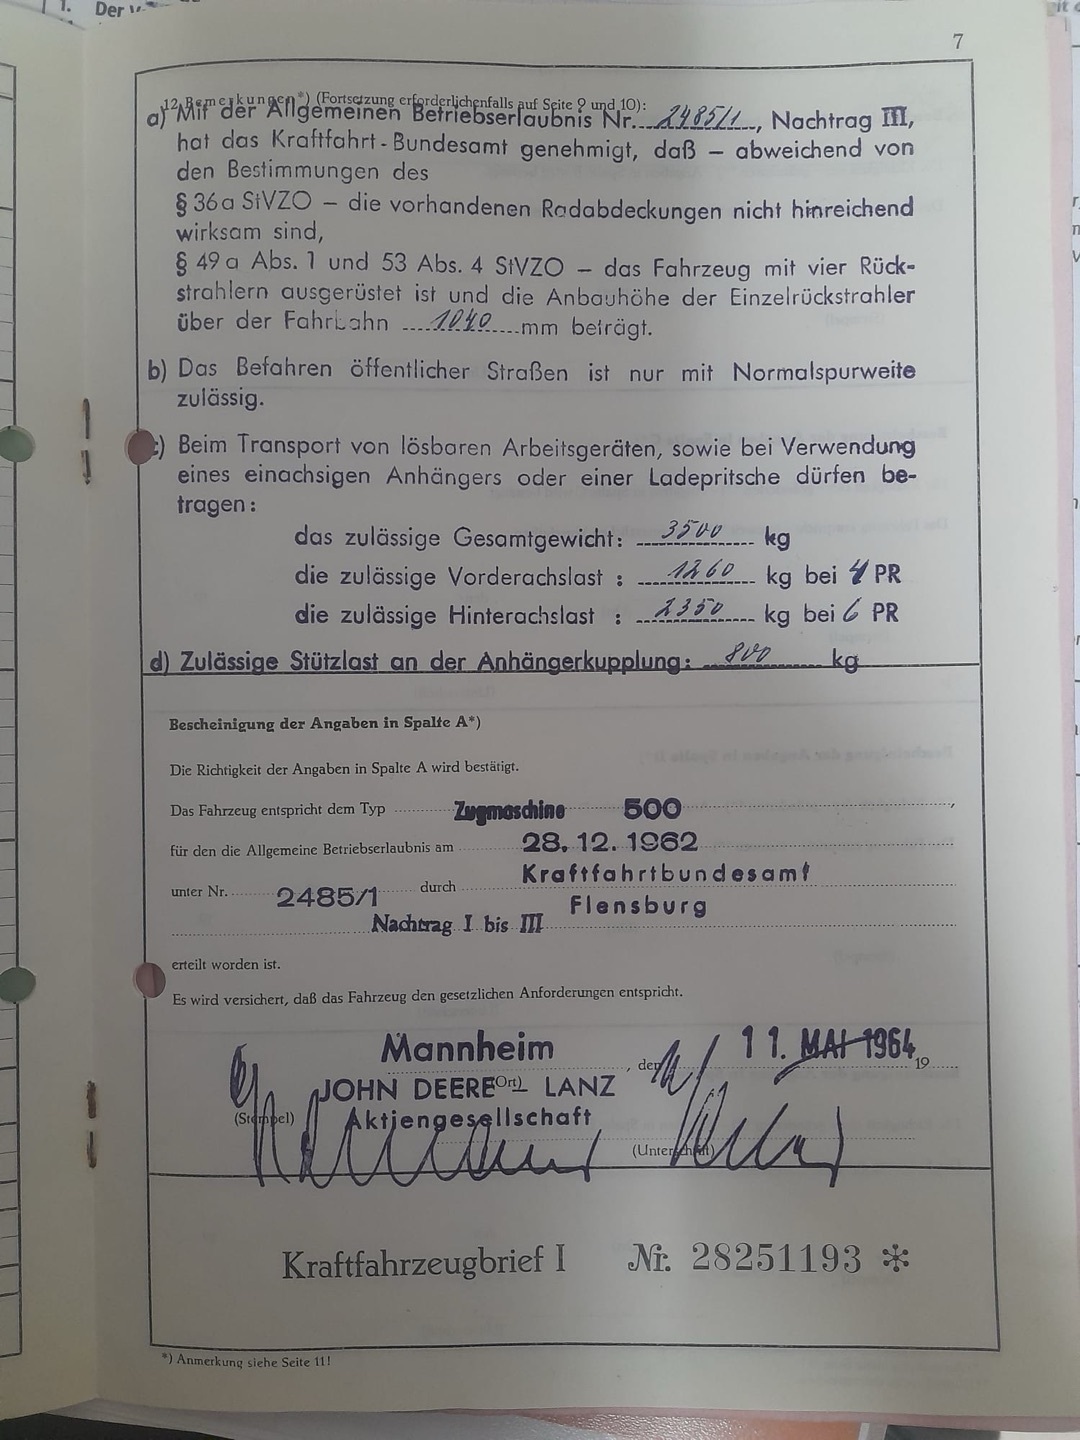 1. Der
7
12. Bemerkungen*) (Fortsetzung erforderlichenfalls auf Seite 9 und 10):
a) Mit der Allgemeinen Betriebserlaubnis Nr. 2485/1, Nachtrag III,
hat das Kraftfahrt-Bundesamt genehmigt, daß – abweichend von
den Bestimmungen des
§ 36a StVZO – die vorhandenen Radabdeckungen nicht hinreichend
wirksam sind,
§ 49a Abs. 1 und 53 Abs. 4 StVZO – das Fahrzeug mit vier Rück-
strahlern ausgerüstet ist und die Anbauhöhe der Einzelrückstrahler
über der Fahrbahn 1040 mm beträgt.
b) Das Befahren öffentlicher Straßen ist nur mit Normalspurweite
zulässig.
c) Beim Transport von lösbaren Arbeitsgeräten, sowie bei Verwendung
eines einachsigen Anhängers oder einer Ladepritsche dürfen be-
tragen:
das zulässige Gesamtgewicht: 3500 kg
die zulässige Vorderachslast : 1260 kg bei 4 PR
die zulässige Hinterachslast : 2350 kg bei 6 PR
d) Zulässige Stützlast an der Anhängerkupplung: 800 kg
Bescheinigung der Angaben in Spalte A*)
Die Richtigkeit der Angaben in Spalte A wird bestätigt.
Das Fahrzeug entspricht dem Typ Zugmaschine 500,
für den die Allgemeine Betriebserlaubnis am 28. 12. 1962
unter Nr. 2485/1 durch Kraftfahrtbundesamt
Flensburg
Nachtrag I bis III
erteilt worden ist.
Es wird versichert, daß das Fahrzeug den gesetzlichen Anforderungen entspricht.
Mannheim, den 11. MAI 1964 19
JOHN DEERE (Ort) LANZ
(Stempel) Aktiengesellschaft
(Unterschrift)
Kraftfahrzeugbrief I Nr. 28251193 *
*) Anmerkung siehe Seite 11!